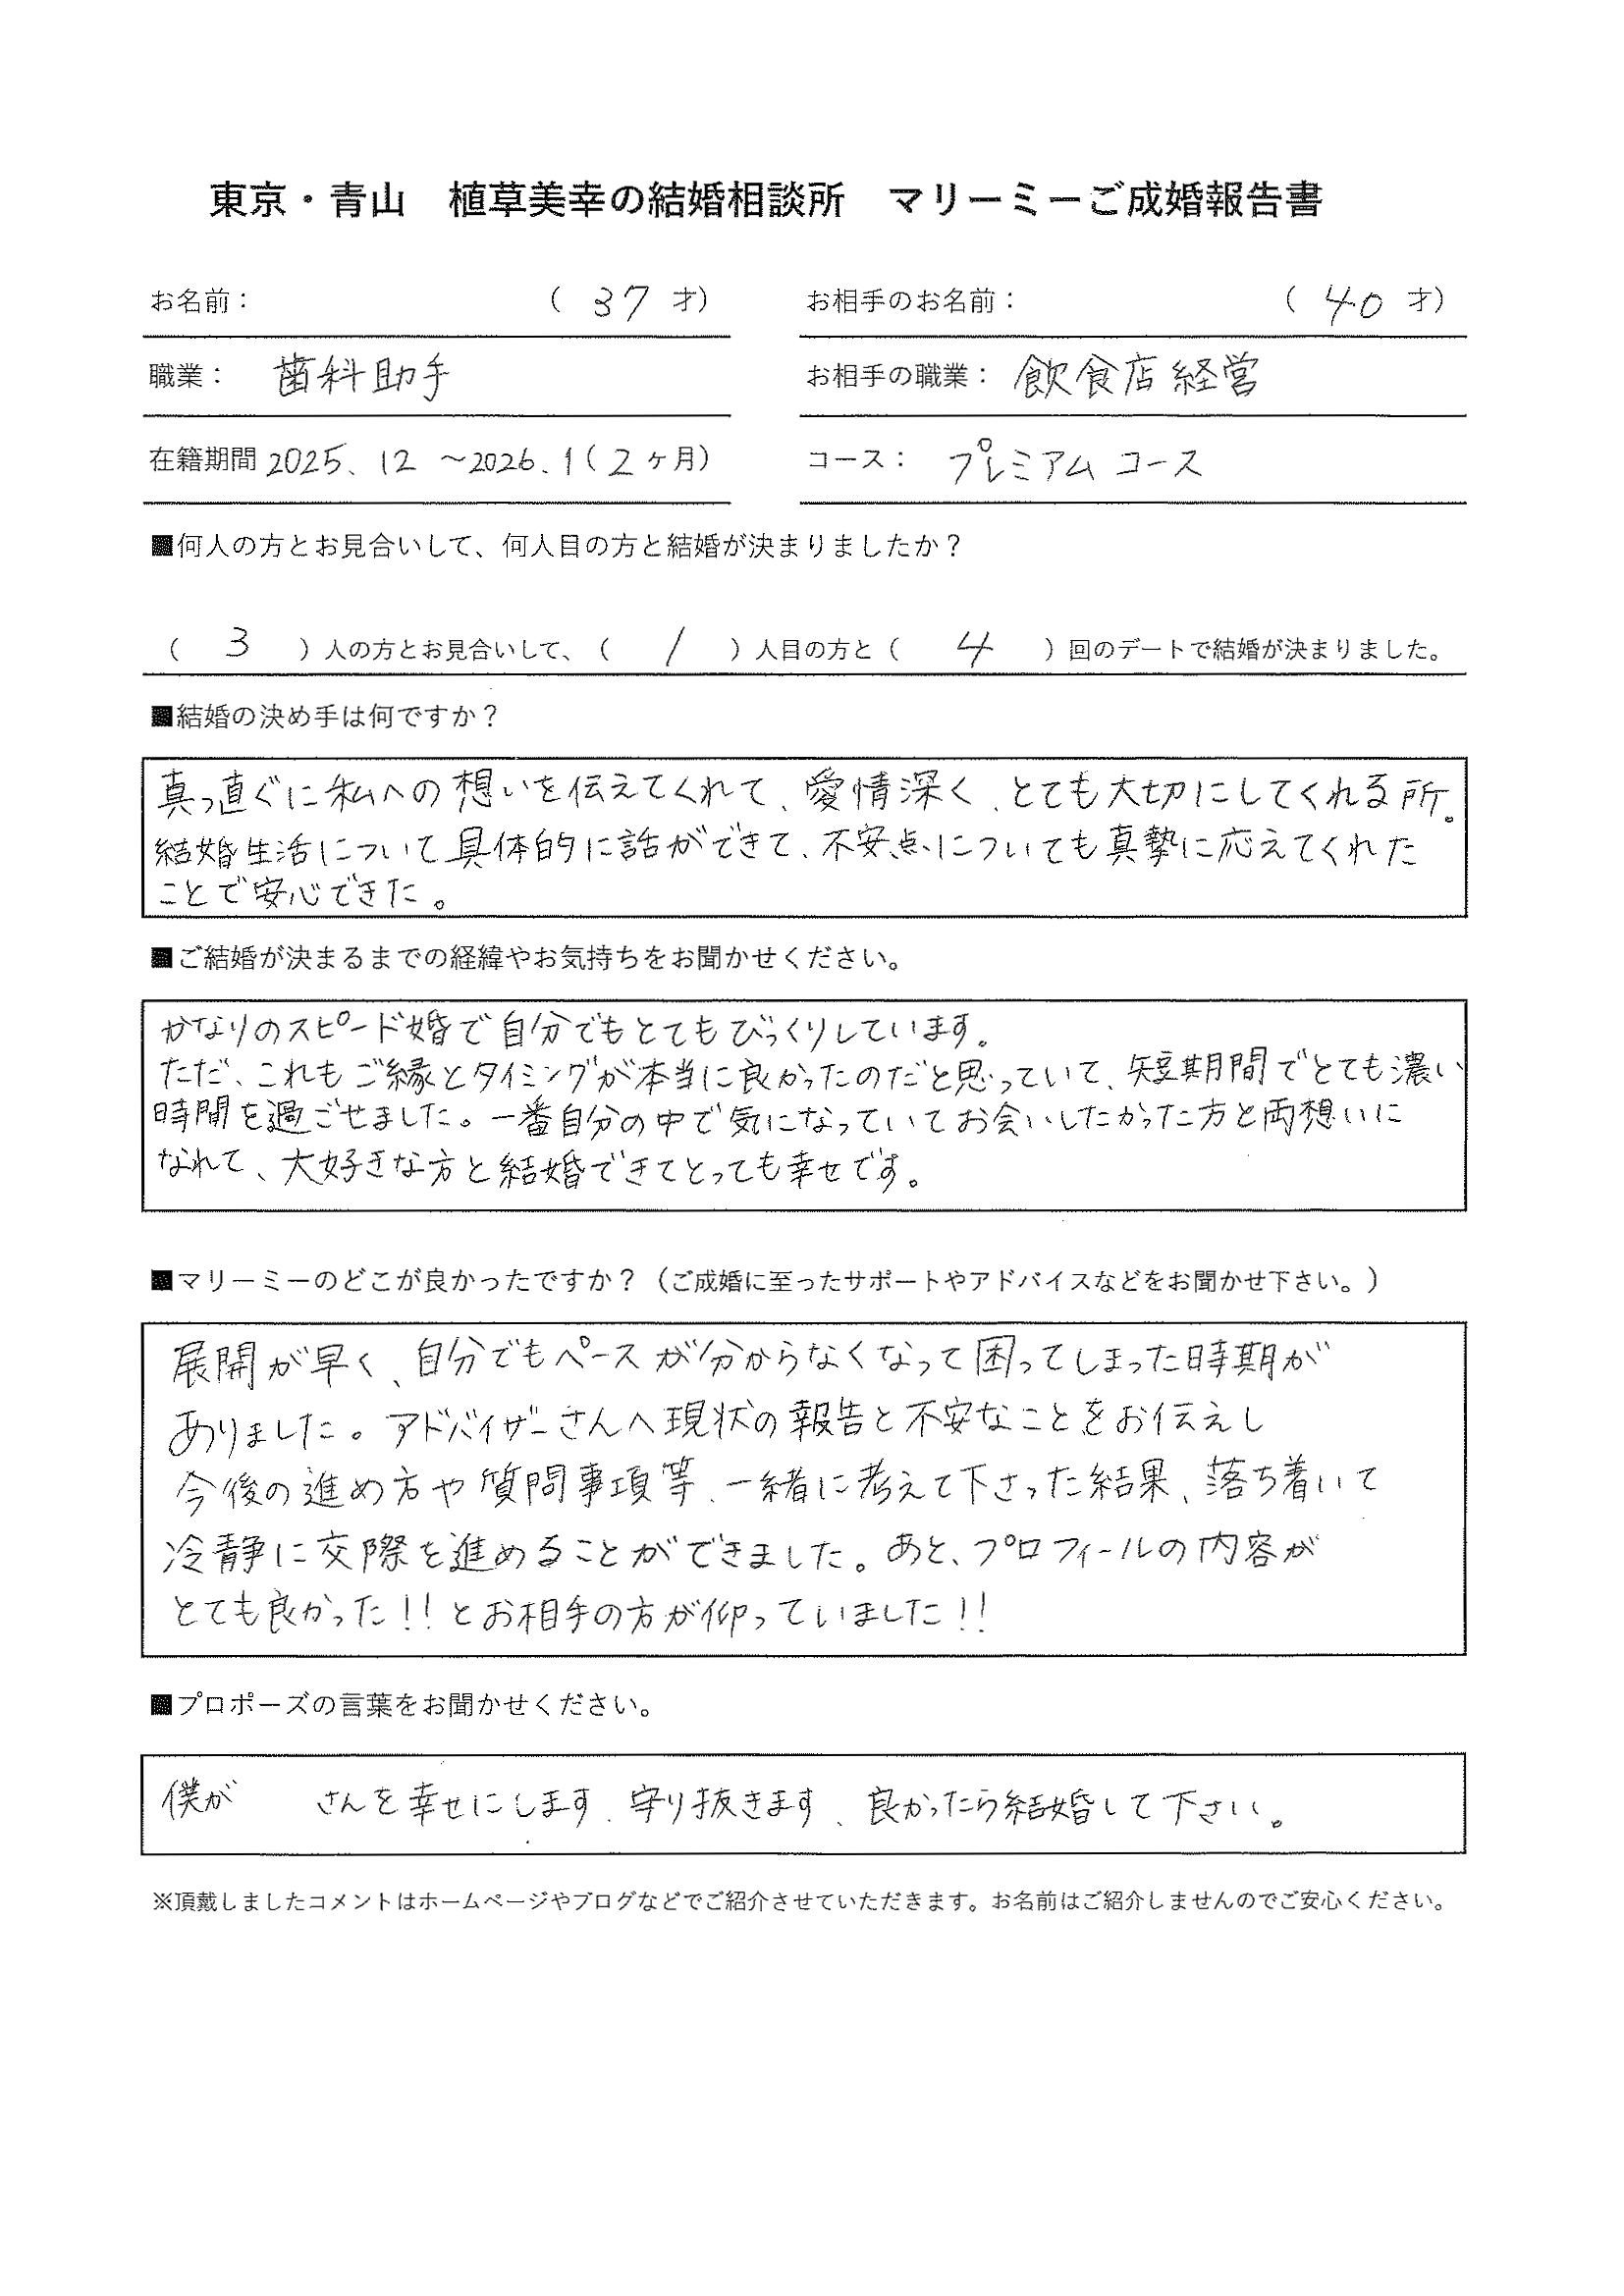 東京・青山　植草美幸の結婚相談所　マリーミーご成婚報告書
お名前：　（ 37 才）　お相手のお名前：　（ 40 才）
職業： 歯科助手　お相手の職業： 飲食店経営
在籍期間 2025、12 〜2026、1（ 2 ヶ月）　コース： プレミアムコース
■何人の方とお見合いして、何人目の方と結婚が決まりましたか？
（ 3 ）人の方とお見合いして、（ 1 ）人目の方と（ 4 ）回のデートで結婚が決まりました。
■結婚の決め手は何ですか？
真っ直ぐに私への想いを伝えてくれて、愛情深く、とても大切にしてくれる所。
結婚生活について具体的に話ができて、不安点についても真摯に応えてくれた
ことで安心できた。
■ご結婚が決まるまでの経緯やお気持ちをお聞かせください。
かなりのスピード婚で自分でもとてもびっくりしています。
ただ、これもご縁とタイミングが本当に良かったのだと思っていて、短期間でとても濃い
時間を過ごせました。一番自分の中で気になっていてお会いしたかった方と両想いに
なれて、大好きな方と結婚できてとっても幸せです。
■マリーミーのどこが良かったですか？（ご成婚に至ったサポートやアドバイスなどをお聞かせ下さい。）
展開が早く、自分でもペースが分からなくなって困ってしまった時期が
ありました。アドバイザーさんへ現状の報告と不安なことをお伝えし
今後の進め方や質問事項等、一緒に考えて下さった結果、落ち着いて
冷静に交際を進めることができました。あと、プロフィールの内容が
とても良かった!!とお相手の方が仰っていました!!
■プロポーズの言葉をお聞かせください。
僕が　　さんを幸せにします、守り抜きます、良かったら結婚して下さい。
※頂戴しましたコメントはホームページやブログなどでご紹介させていただきます。お名前はご紹介しませんのでご安心ください。